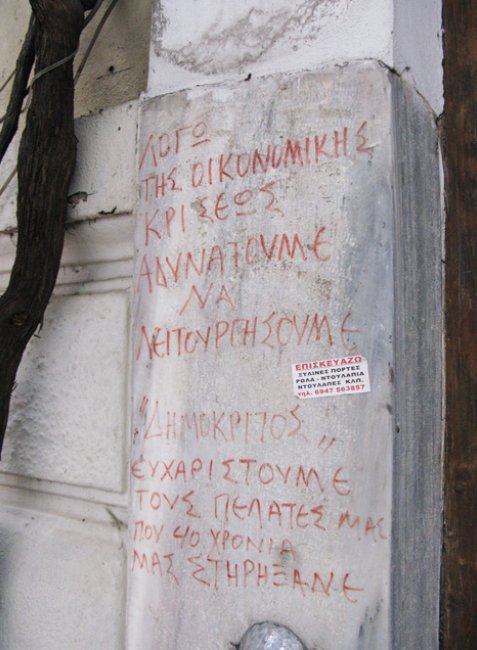 ΛΟΓΩ
ΤΗΣ ΟΙΚΟΝΟΜΙΚΗΣ
ΚΡΙΣΕΩΣ
ΑΔΥΝΑΤΟΥΜΕ
ΝΑ
ΛΕΙΤΟΥΡΓΗΣΟΥΜΕ
ΕΠΙΣΚΕΥΑΖΩ
ΞΥΛΙΝΕΣ ΠΟΡΤΕΣ
ΡΟΛΑ - ΝΤΟΥΛΑΠΙΑ
ΝΤΟΥΛΑΠΕΣ ΚΛΠ.
τηλ. 6947 563857
"ΔΗΜΟΚΡΙΤΟΣ„
ΕΥΧΑΡΙΣΤΟΥΜΕ
ΤΟΥΣ ΠΕΛΑΤΕΣ ΜΑΣ
ΠΟΥ 40 ΧΡΟΝΙΑ
ΜΑΣ ΣΤΗΡΗΞΑΝΕ